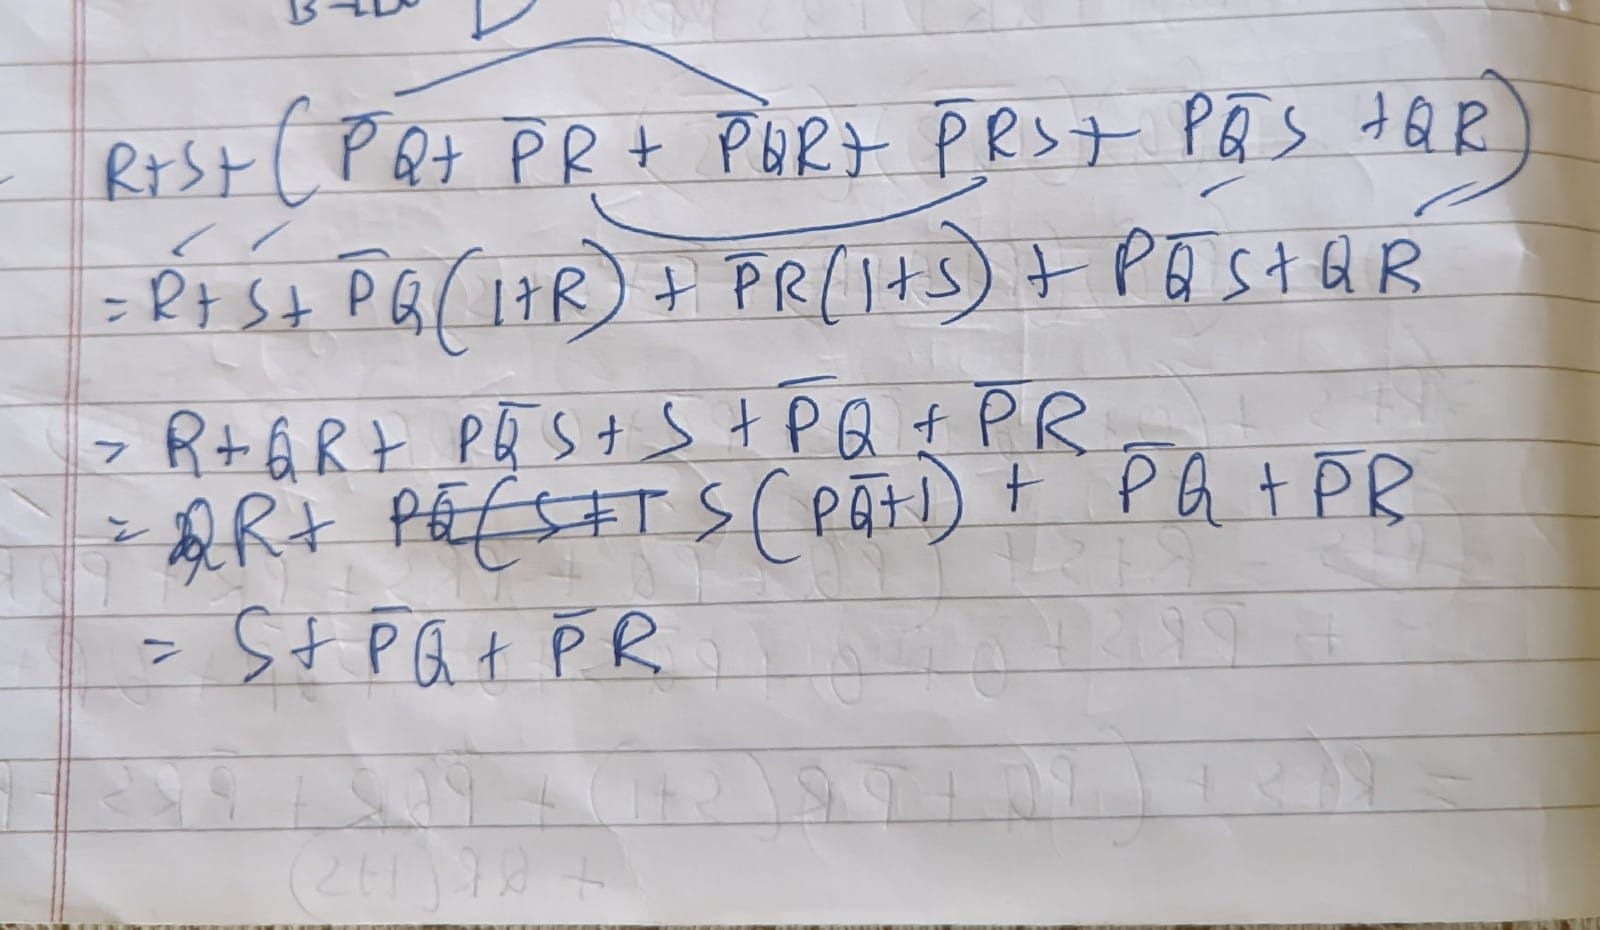 R+S+(P̅Q+ P̅R + P̅QR+ P̅RS+ PQ̅S +QR)
= R+ S+ P̅Q(1+R) + P̅R(1+S) + PQ̅S+QR
= R+QR+ PQ̅S+ S +P̅Q +P̅R
= QR+ S(PQ̅+1) + P̅Q +P̅R
= S+P̅Q+P̅R